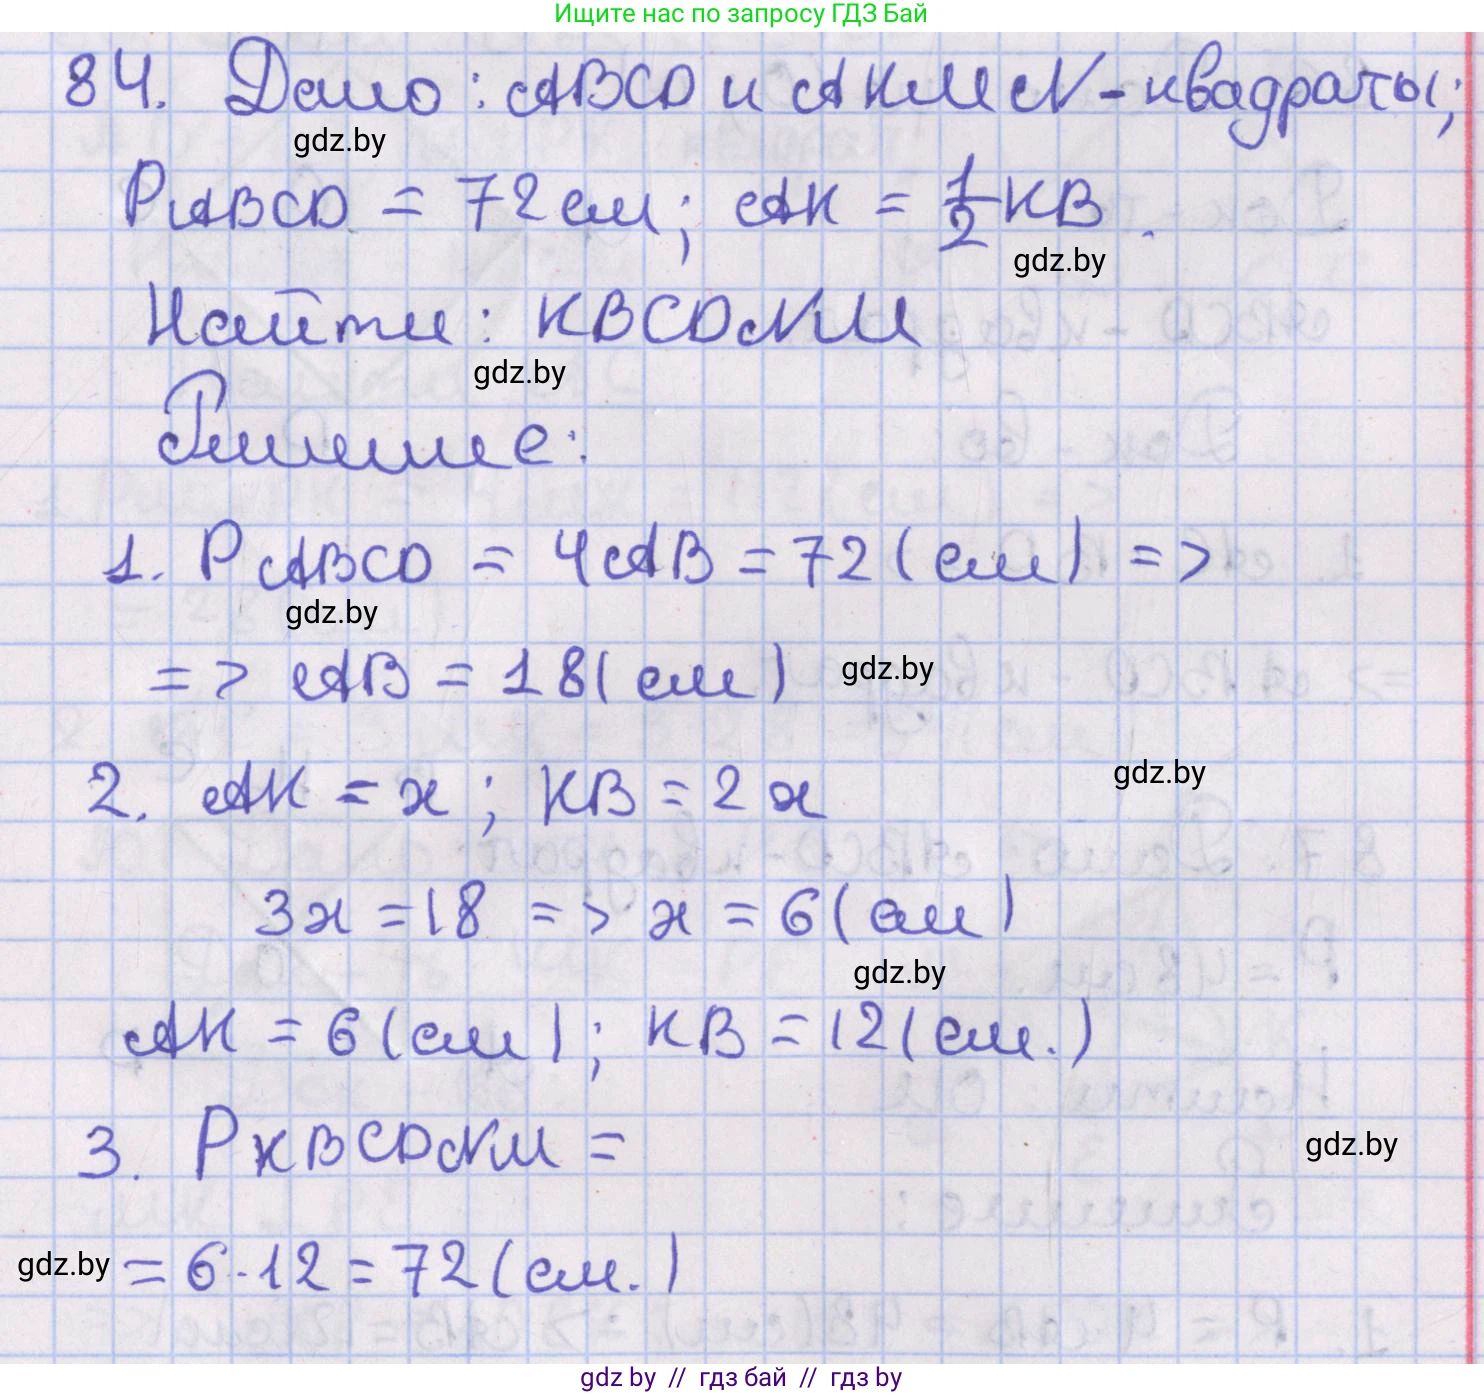 Ищите нас по запросу ГДЗ Бай
84. Дано: ABCD и AKMN - квадраты;
gdz.by
P ABCD = 72 см; AK = 1/2 KB.
gdz.by
Найти: KBCDNM
gdz.by
Решение:
1. P ABCD = 4AB = 72 (см) =>
gdz.by
=> AB = 18 (см)
gdz.by
2. AK = x; KB = 2x
gdz.by
3x = 18 => x = 6 (см)
gdz.by
AK = 6 (см); KB = 12 (см.)
3. P KBCDNM =
gdz.by
gdz.by
= 6 · 12 = 72 (см.)
gdz.by // гдз бай // gdz.by